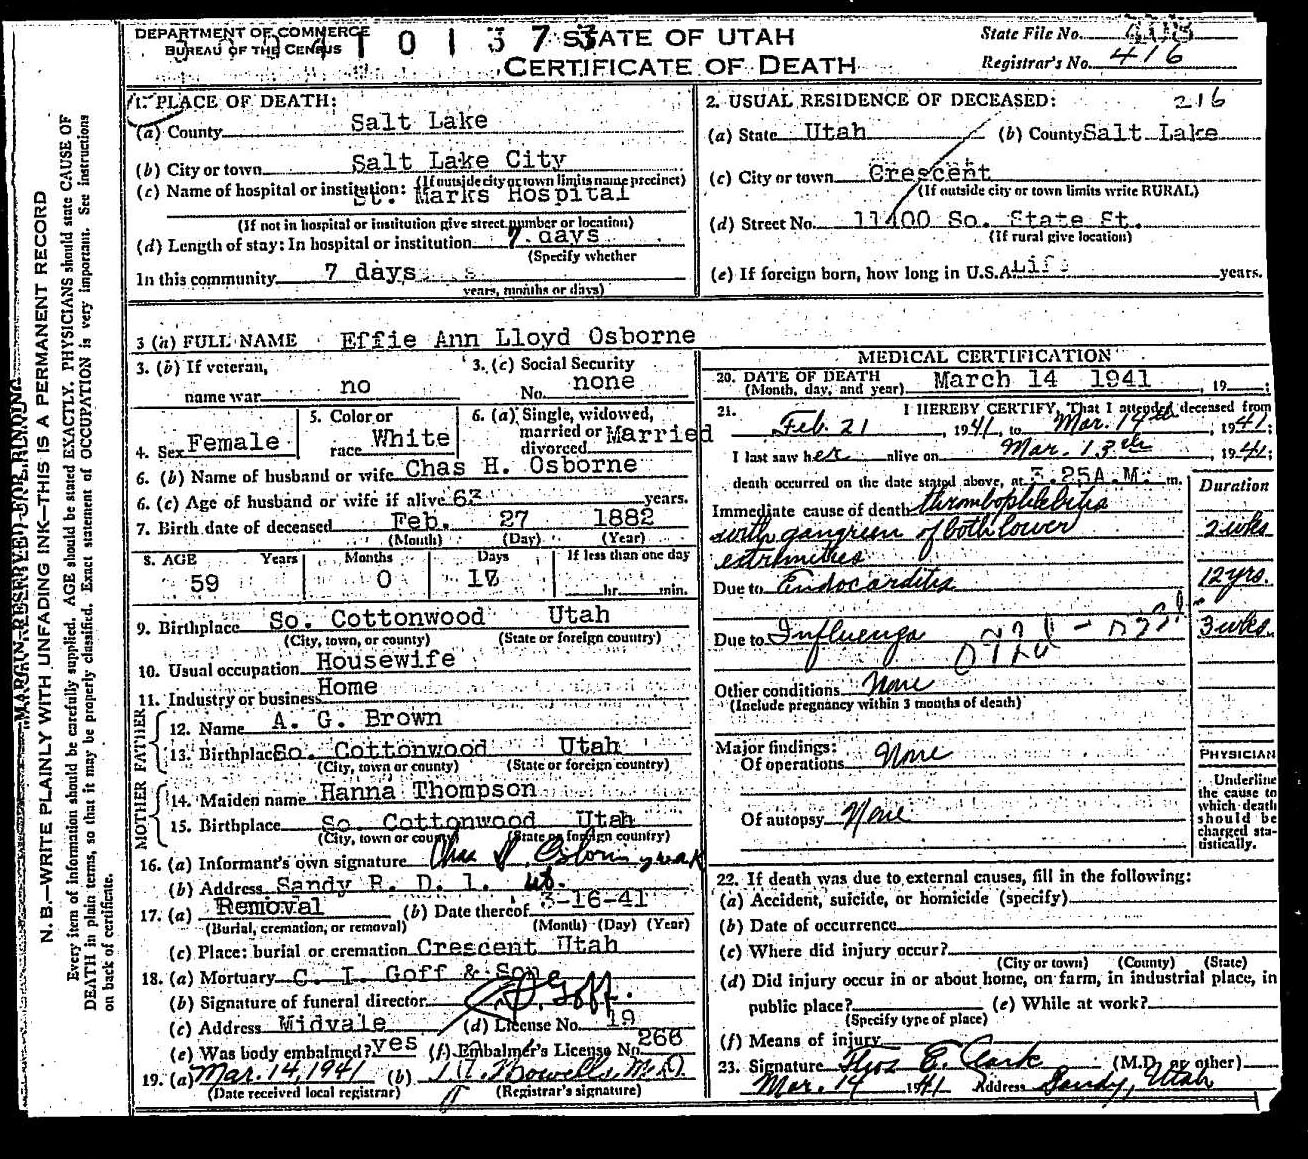 DEPARTMENT OF COMMERCE
BUREAU OF THE CENSUS
1 0 1 3 7 3
STATE OF UTAH
CERTIFICATE OF DEATH
State File No.
Registrar's No. 416
MARGIN RESERVED FOR BINDING
N. B.—WRITE PLAINLY WITH UNFADING INK—THIS IS A PERMANENT RECORD
Every item of information should be carefully supplied. AGE should be stated EXACTLY. PHYSICIANS should state CAUSE OF
DEATH in plain terms, so that it may be properly classified. Exact statement of OCCUPATION is very important. See instructions
on back of certificate.
1. PLACE OF DEATH:
(a) County Salt Lake
(b) City or town Salt Lake City
(If outside city or town limits name precinct)
(c) Name of hospital or institution: St. Marks Hospital
(If not in hospital or institution give street number or location)
(d) Length of stay: In hospital or institution 7 days
(Specify whether
In this community 7 days
years, months or days)
2. USUAL RESIDENCE OF DECEASED: 216
(a) State Utah (b) County Salt Lake
(c) City or town Crescent
(If outside city or town limits write RURAL)
(d) Street No. 11400 So. State St.
(If rural give location)
(e) If foreign born, how long in U.S.A. Life years.
3 (a) FULL NAME Effie Ann Lloyd Osborne
3. (b) If veteran, name war no
3. (c) Social Security No. none
4. Sex Female
5. Color or race White
6. (a) Single, widowed, married or divorced Married
6. (b) Name of husband or wife Chas H. Osborne
6. (c) Age of husband or wife if alive 63 years.
7. Birth date of deceased Feb. 27 1882
(Month) (Day) (Year)
8. AGE Years Months Days If less than one day
59 0 hr. min.
9. Birthplace So. Cottonwood Utah
(City, town, or county) (State or foreign country)
10. Usual occupation Housewife
11. Industry or business Home
FATHER
12. Name A. G. Brown
13. Birthplace So. Cottonwood Utah
(City, town or county) (State or foreign country)
MOTHER
14. Maiden name Hanna Thompson
15. Birthplace So. Cottonwood Utah
(City, town or county) (State or foreign country)
16. (a) Informant's own signature Chas
(b) Address Sandy R. D. 1. Ut.
17. (a) Removal (b) Date thereof 3-16-41
(Burial, cremation, or removal) (Month) (Day) (Year)
(c) Place: burial or cremation Crescent Utah
18. (a) Mortuary C. I. Goff & Sons
(b) Signature of funeral director Goff.
(c) Address Midvale (d) License No. 19
(e) Was body embalmed? yes (f) Embalmer's License No. 266
19. (a) Mar. 14, 1941 (b) M.D.
(Date received local registrar) (Registrar's signature)
MEDICAL CERTIFICATION
20. DATE OF DEATH March 14 1941 19 ;
(Month, day, and year)
21. I HEREBY CERTIFY, That I attended deceased from
Feb. 21, 1941, to Mar. 14th, 1941;
I last saw her alive on Mar. 13th, 1941;
death occurred on the date stated above, at .25A.M. m.
Duration
Immediate cause of death thrombophlebitis
with gangreen of both lower 2 wks
extremities
Due to Endocarditis 12 yrs.
Due to Influenza 3 wks.
Other conditions None
(Include pregnancy within 3 months of death)
Major findings:
Of operations None
Of autopsy None
PHYSICIAN
Underline
the cause to
which death
should be
charged sta-
tistically.
22. If death was due to external causes, fill in the following:
(a) Accident, suicide, or homicide (specify)
(b) Date of occurrence
(c) Where did injury occur?
(City or town) (County) (State)
(d) Did injury occur in or about home, on farm, in industrial place, in
public place? (e) While at work?
(Specify type of place)
(f) Means of injury
23. Signature E. Clark (M.D. or other)
Mar. 14 1941 Address Sandy, Utah